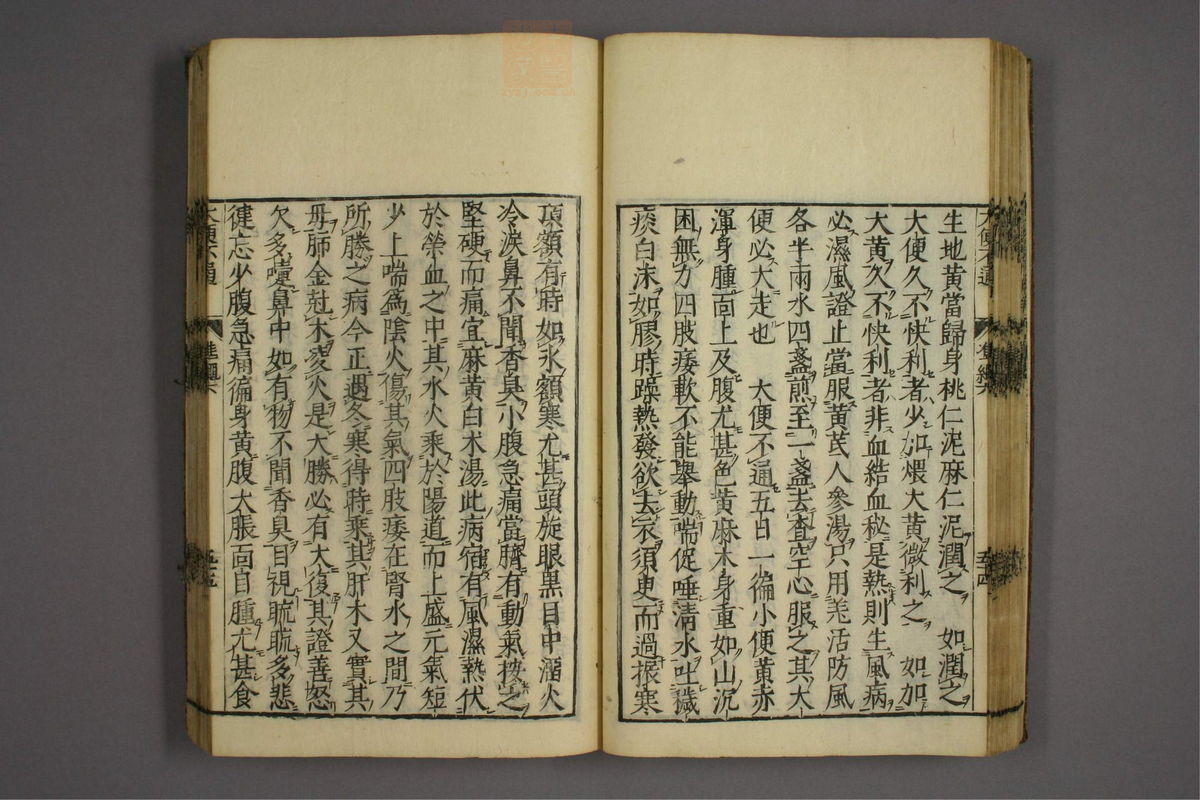 生地黄當歸身桃仁泥麻仁泥潤之 如潤之
大便久不快利者少加煨大黄微利之 如加
大黄久不快利者非血結血秘是熱則生風病
必濕風證止當服黄芪人參湯只用羌活防風
各半兩水四盞煎至一盞去査空心服之其大
便必大走也 大便不通五日一徧小便黄赤
渾身腫面上及腹尤甚色黄麻木身重如山沉
困無力四肢痿軟不能舉動喘促唾清水吐穢
痰白沫如膠時躁熱發欲去衣須臾而過振寒
項額有時如氷額寒尤甚頭旋眼黒目中溜火
冷淚鼻不聞香臭小腹急痛當臍有動氣按之
堅硬而痛宜麻黄白术湯此病宿有風濕熱伏
於榮血之中其水火乘於陽道而上盛元氣短
少上喘爲陰火傷其氣四肢痿在腎水之間乃
所勝之病今正遇冬寒得時乘其肝木又實其
母肺金尅木凌火是大勝必有大復其證善怒
欠多嚏鼻中如有物不聞香臭目視䀮䀮多悲
健忘少腹急痛徧身黄腹大脹面目腫尤甚食
大便不通
五十五